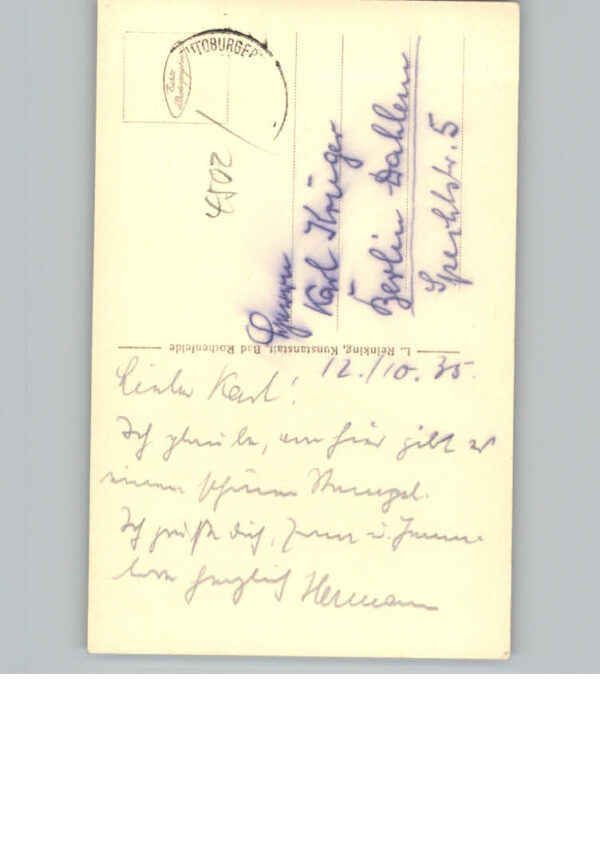 TOBURGER
Echte Photographie
4502
Herrn
Karl Krüger
Berlin Dahlem
Spechtstr. 5
L. Reinking, Kunstanstalt, Bad Rothenfelde
12./10. 35.
Lieber Karl!
Ich glaube, von hier gibt es
einen schönen Stempel.
Ich grüße dich, u.
herzlich Hermann